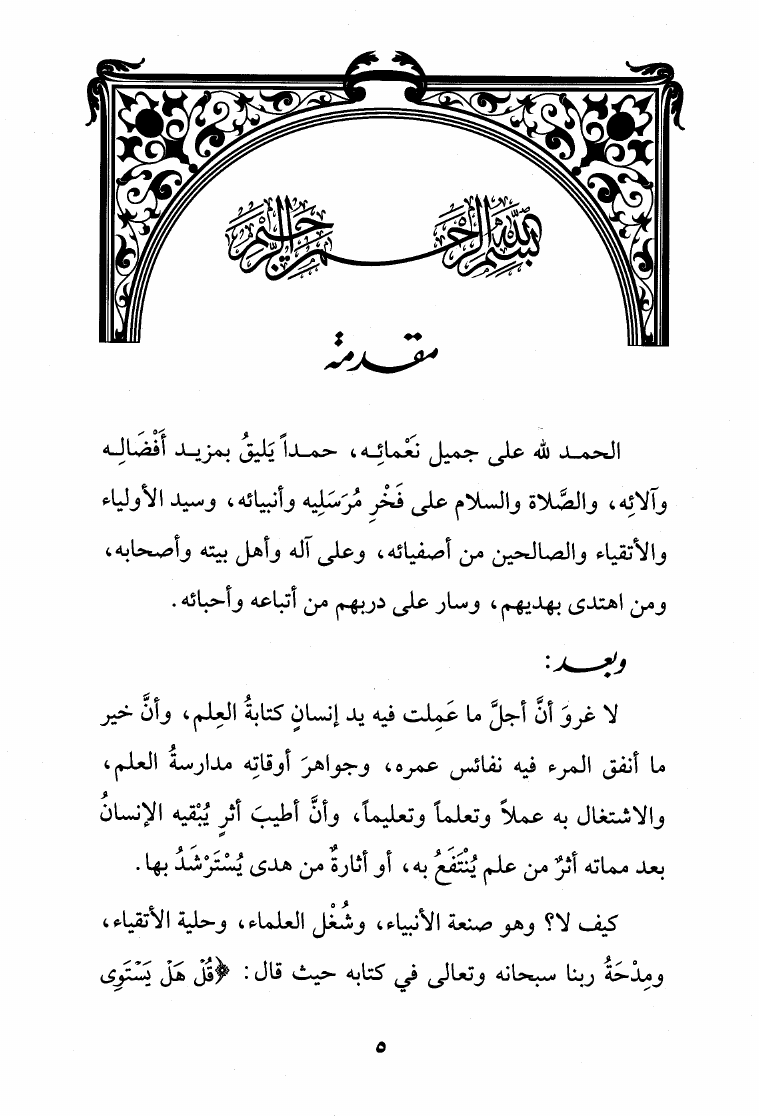 بسم الله الرحمن الرحيم
مقدمة
الحمـد لله على جميل نَعْمائِـه، حمـداً يَليقُ بمزيـد أَفْضَالِـه
وآلائِه، والصَّلاة والسلام على فَخْرِ مُرَسَلِيه وأنبيائه، وسيد الأولياء
والأتقياء والصالحين من أصفيائه، وعلى آله وأهل بيته وأصحابه،
ومن اهتدى بهديهم، وسار على دربهم من أتباعه وأحبائه.
وبعـد:
لا غروَ أنَّ أجلَّ ما عَمِلت فيه يد إنسانٍ كتابةُ العِلم، وأنَّ خير
ما أنفق المرء فيه نفائس عمره، وجواهرَ أوقاتِه مدارسةُ العلم،
والاشتغال به عملاً وتعلماً وتعليماً، وأنَّ أطيبَ أثرٍ يُبْقيه الإنسانُ
بعد مماته أثرٌ من علم يُنْتَفَعُ به، أو أثارةٌ من هدى يُسْتَرْشَدُ بها.
كيف لا؟ وهو صنعة الأنبياء، وشُغْل العلماء، وحلية الأتقياء،
ومِدْحَةُ ربنا سبحانه وتعالى في كتابه حيث قال: ﴿قُلْ هَلْ يَسْتَوِى
٥